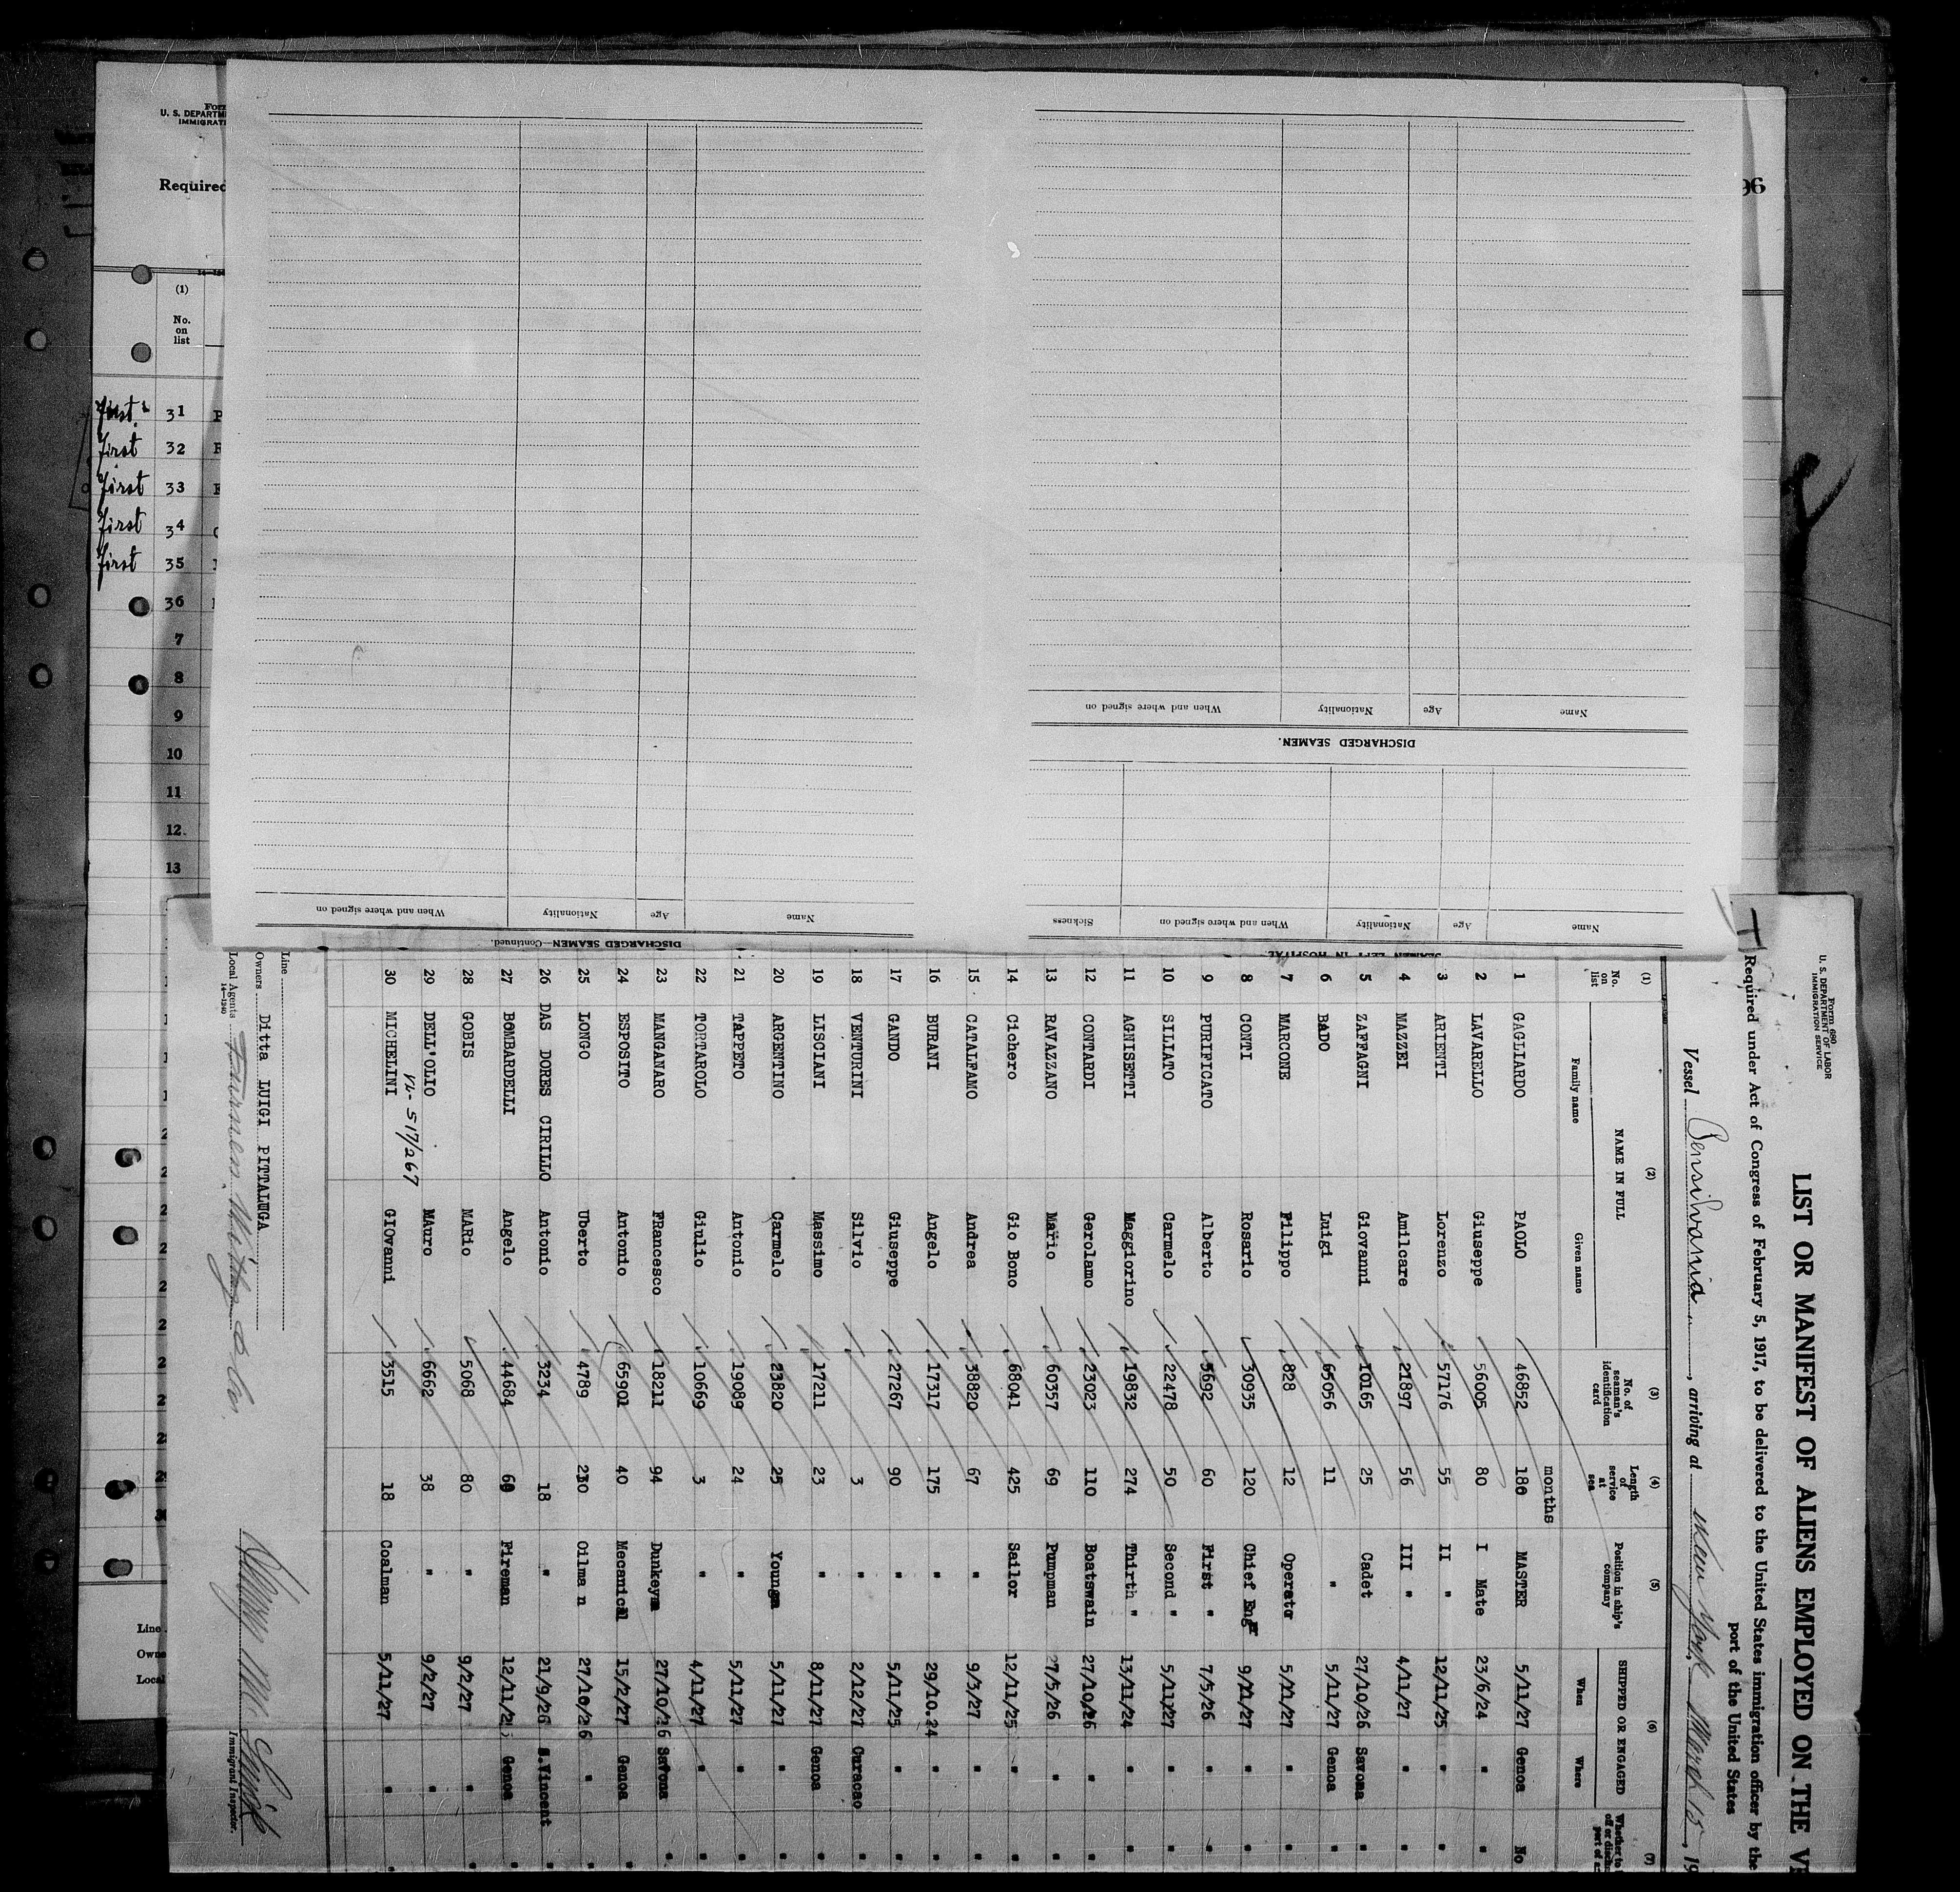 Form
U. S. DEPARTM
IMMIGRATI
Required
96
(1)
No.
on
list
First 31
First 32
First 33
First 34
First 35
36
7
8
9
10
11
12
13
Line
Owne
Local
When and where signed on Nationality Age Name
DISCHARGED SEAMEN.
When and where signed on Nationality Age Name
Sickness When and where signed on Nationality Age Name
DISCHARGED SEAMEN—Continued.
SEAMEN LEFT IN HOSPITAL
Form 680
U. S. DEPARTMENT OF LABOR
IMMIGRATION SERVICE
LIST OR MANIFEST OF ALIENS EMPLOYED ON THE VE
Required under Act of Congress of February 5, 1917, to be delivered to the United States immigration officer by the
port of the United States
Vessel Pensilvania, arriving at New York, March 15, 19
(1) (2) (3) (4) (5) (6) (7)
No. on list NAME IN FULL No. of seaman's identification card Length of service at sea Position in ship's company SHIPPED OR ENGAGED
Family name Given name When Where
months
1 GAGLIARDO PAOLO 46852 180 MASTER 5/11/27 Genoa No
2 LAVARELLO Giuseppe 56005 80 I Mate 23/6/24 " "
3 ARIENTI Lorenzo 57176 55 II " 12/11/25 " "
4 MAZZEI Amilcare 21897 56 III " 4/11/27 " "
5 ZAFFAGNI Giovanni 10165 25 Cadet 27/10/26 Savona "
6 BADO Luigi 65056 11 " 5/11/27 Genoa "
7 MARCONE Filippo 828 12 Operator 5/11/27 " "
8 CONTI Rosario 30935 120 Chief Engr 9/11/27 " "
9 PURIFICATO Alberto 5692 60 First " 7/5/26 " "
10 SILIATO Carmelo 22478 50 Second " 5/11/27 " "
11 AGNISETTI Maggiorino 19832 274 Thirth " 13/11/24 " "
12 CONTARDI Gerolamo 23023 110 Boatswain 27/10/26 " "
13 RAVAZZANO Mario 60357 69 Pumpman 27/5/26 " "
14 Cichero Gio Bono 68041 425 Sailor 12/11/25 " "
15 CATALFAMO Andrea 38820 67 " 9/3/27 " "
16 BURANI Angelo 17317 175 " 29/10.24 " "
17 GANDO Giuseppe 27267 90 " 5/11/25 " "
18 VENTURINI Silvio 3 " 2/12/27 Curacao "
19 LISCIANI Massimo 17211 23 " 8/11/27 Genoa "
20 ARGENTINO Carmelo 23820 25 Youngm 5/11/27 " "
21 TAPPETO Antonio 19089 24 " 5/11/27 " "
22 TORTAROLO Giulio 10669 3 " 4/11/27 " "
23 MANGANARO FRancesco 18211 94 Dunkeym 27/10/26 Savona "
24 ESPOSITO Antonio 65901 40 Mecanical 15/2/27 Genoa "
25 LONGO Uberto 4789 230 Oilma n 27/10/26 " "
26 DAS DORES CIRILLO Antonio 3234 18 " 21/9/26 S.Vincent "
27 BOMBARDELLI Angelo 44684 60 Fireman 12/11/25 Genoa "
28 GOBIS MARio 5068 80 " 9/2/27 " "
29 DELL'OLIO MAuro 6662 38 " 9/2/27 "
VL- 517/267
30 MICHELINI GIOvanni 3515 18 Coalman 5/11/27 " "
Line
Owners Ditta LUIGI PITTALUGA
Local Agents Furness, Withy & Co
14—1240
Immigrant Inspector.